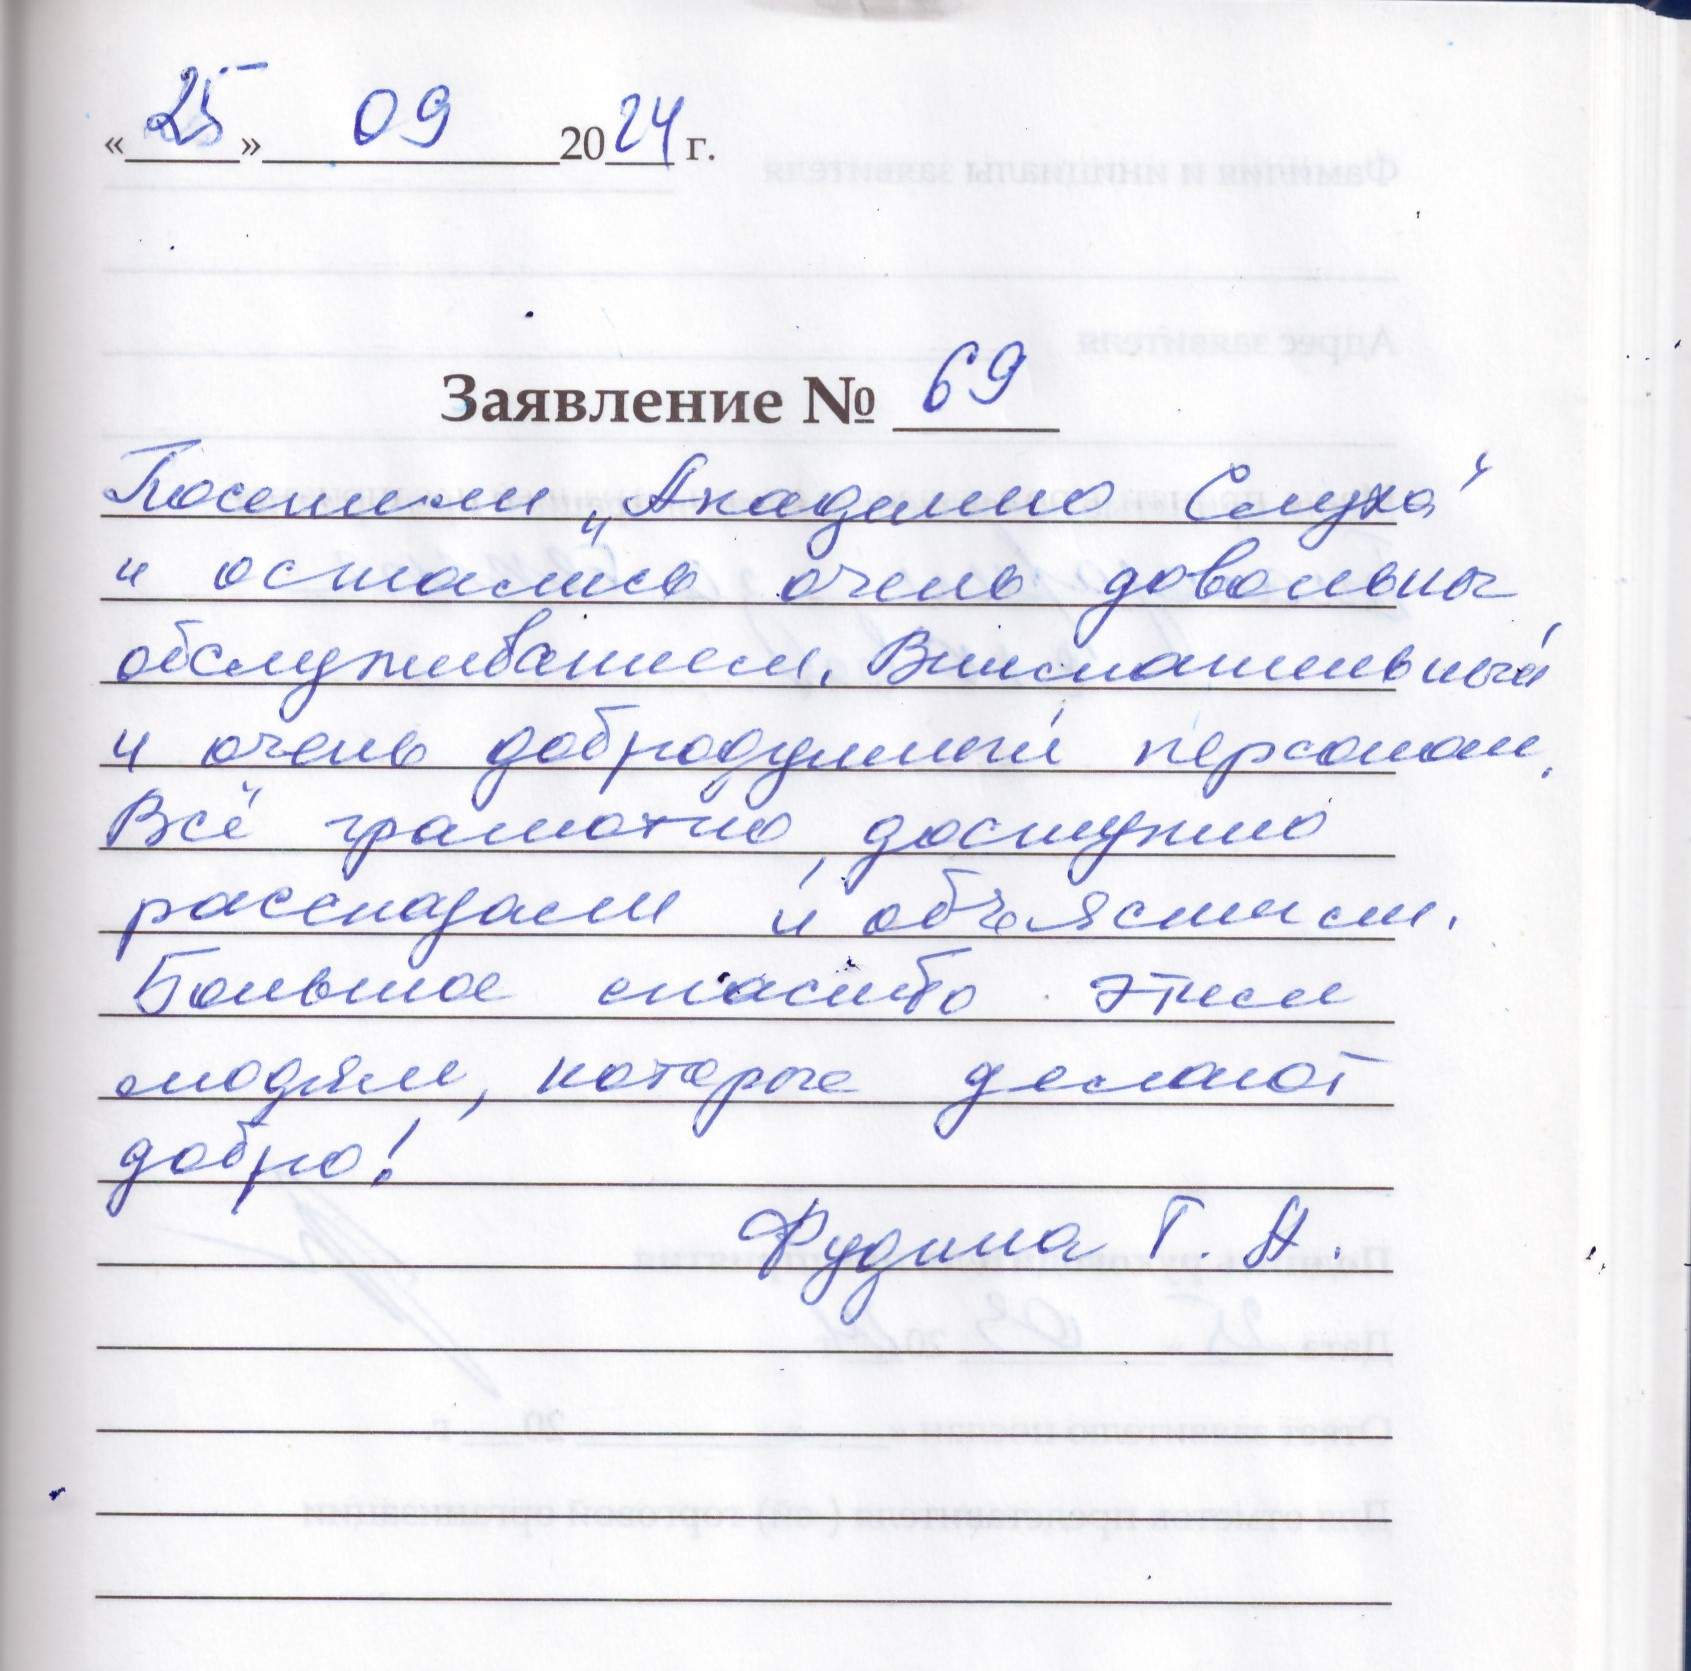 «25» 09 2024 г.
Заявление № 69
Посетили „Академию Слуха“
и остались очень довольны
обслуживанием. Внимательный
и очень добродушный персонал.
Всё грамотно, доступно
рассказали и объяснили.
Большое спасибо этим
людям, которые делают
добро!
Фудина Г. А.